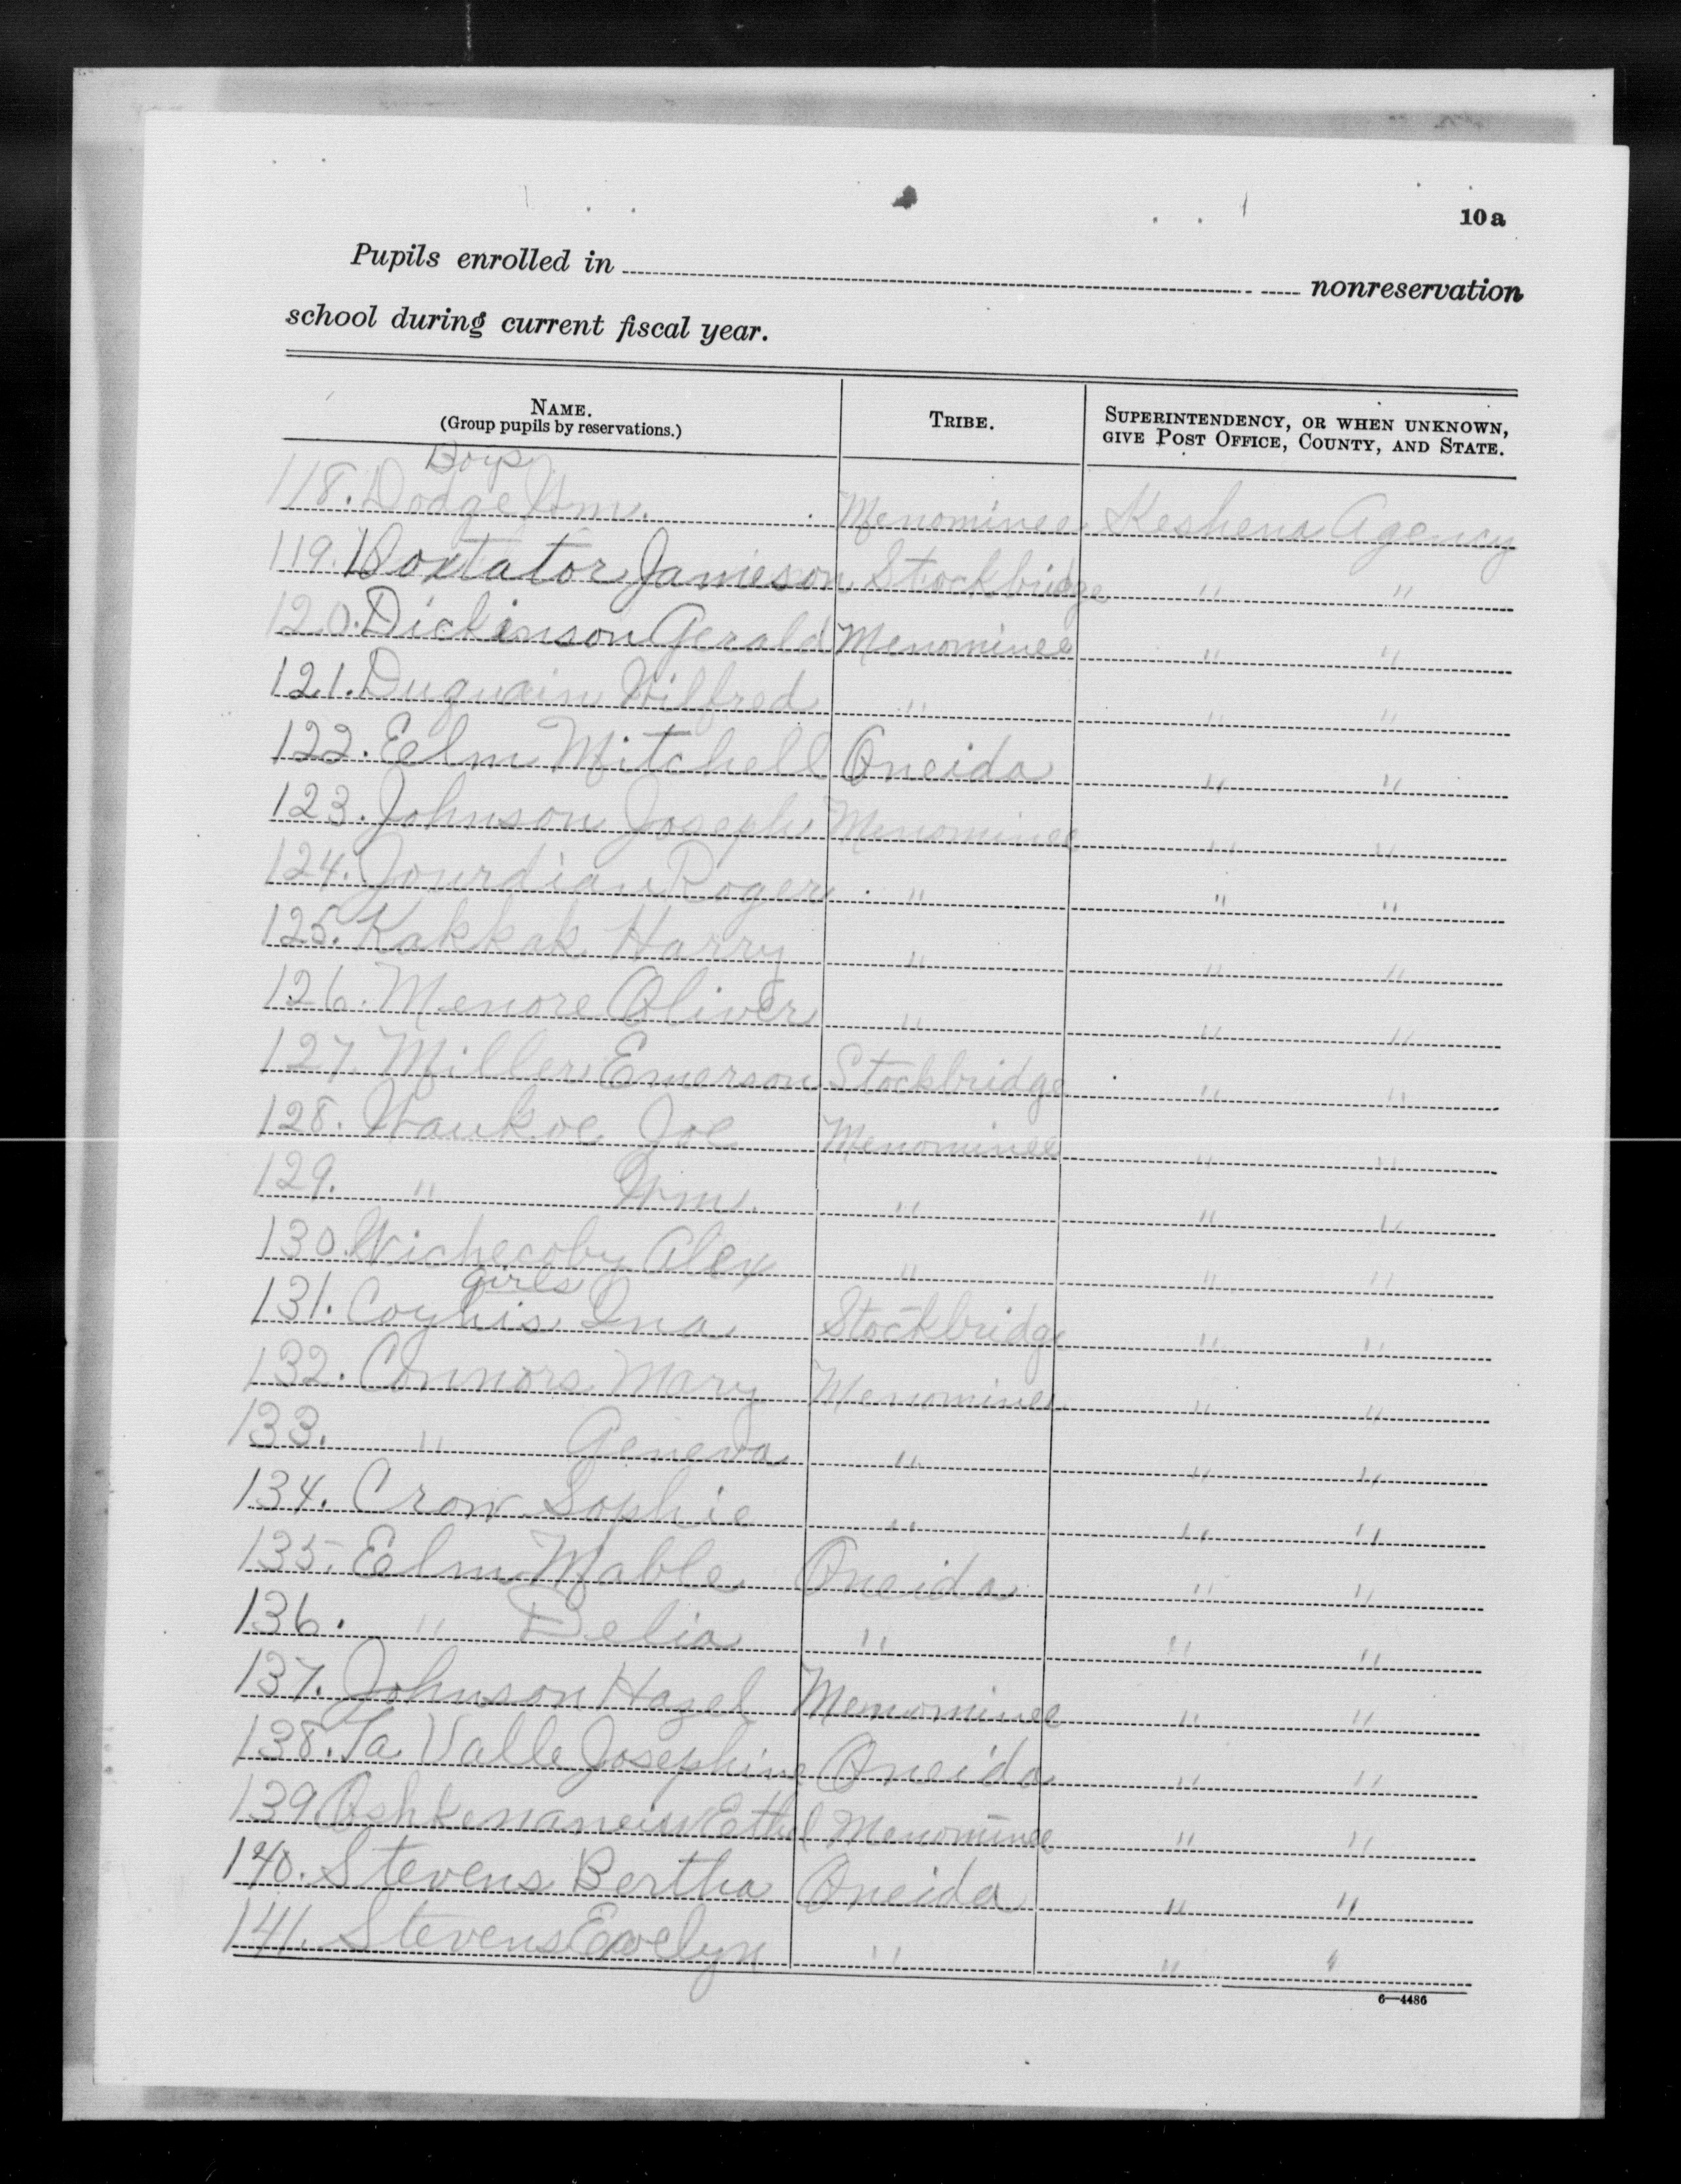 10a
Pupils enrolled in nonreservation
school during current fiscal year.
NAME. TRIBE. SUPERINTENDENCY, OR WHEN UNKNOWN,
(Group pupils by reservations.) GIVE POST OFFICE, COUNTY, AND STATE.
Boys
118. Dodge Wm. Menominee Keshena Agency
119. Doxtator Jamieson Stockbridge " "
120. Dickinson Gerald Menominee " "
121. Duquain Wilfred " " "
122. Eelm Mitchell Oneida " "
123. Johnson Joseph Menominee " "
124. Jourdian Roger " " "
125. Kakkak Harry " " "
126. Menore Oliver " " "
127. Miller Emerson Stockbridge " "
128. Waukoe Joe Menominee " "
129. " Wm. " " "
130. Wichecoby Alex " " "
Girls
131. Coyhis Ina Stockbridge " "
132. Connors Mary Menominee " "
133. " Geneva " " "
134. Crow Sophie " " "
135. Eelm Mable Oneida " "
136. " Delia " " "
137. Johnson Hazel Menominee " "
138. La Valle Josephine Oneida " "
139. Oshkenaneiw Ethel Menominee " "
140. Stevens Bertha Oneida " "
141. Stevens Evelyn " " "
6—4486